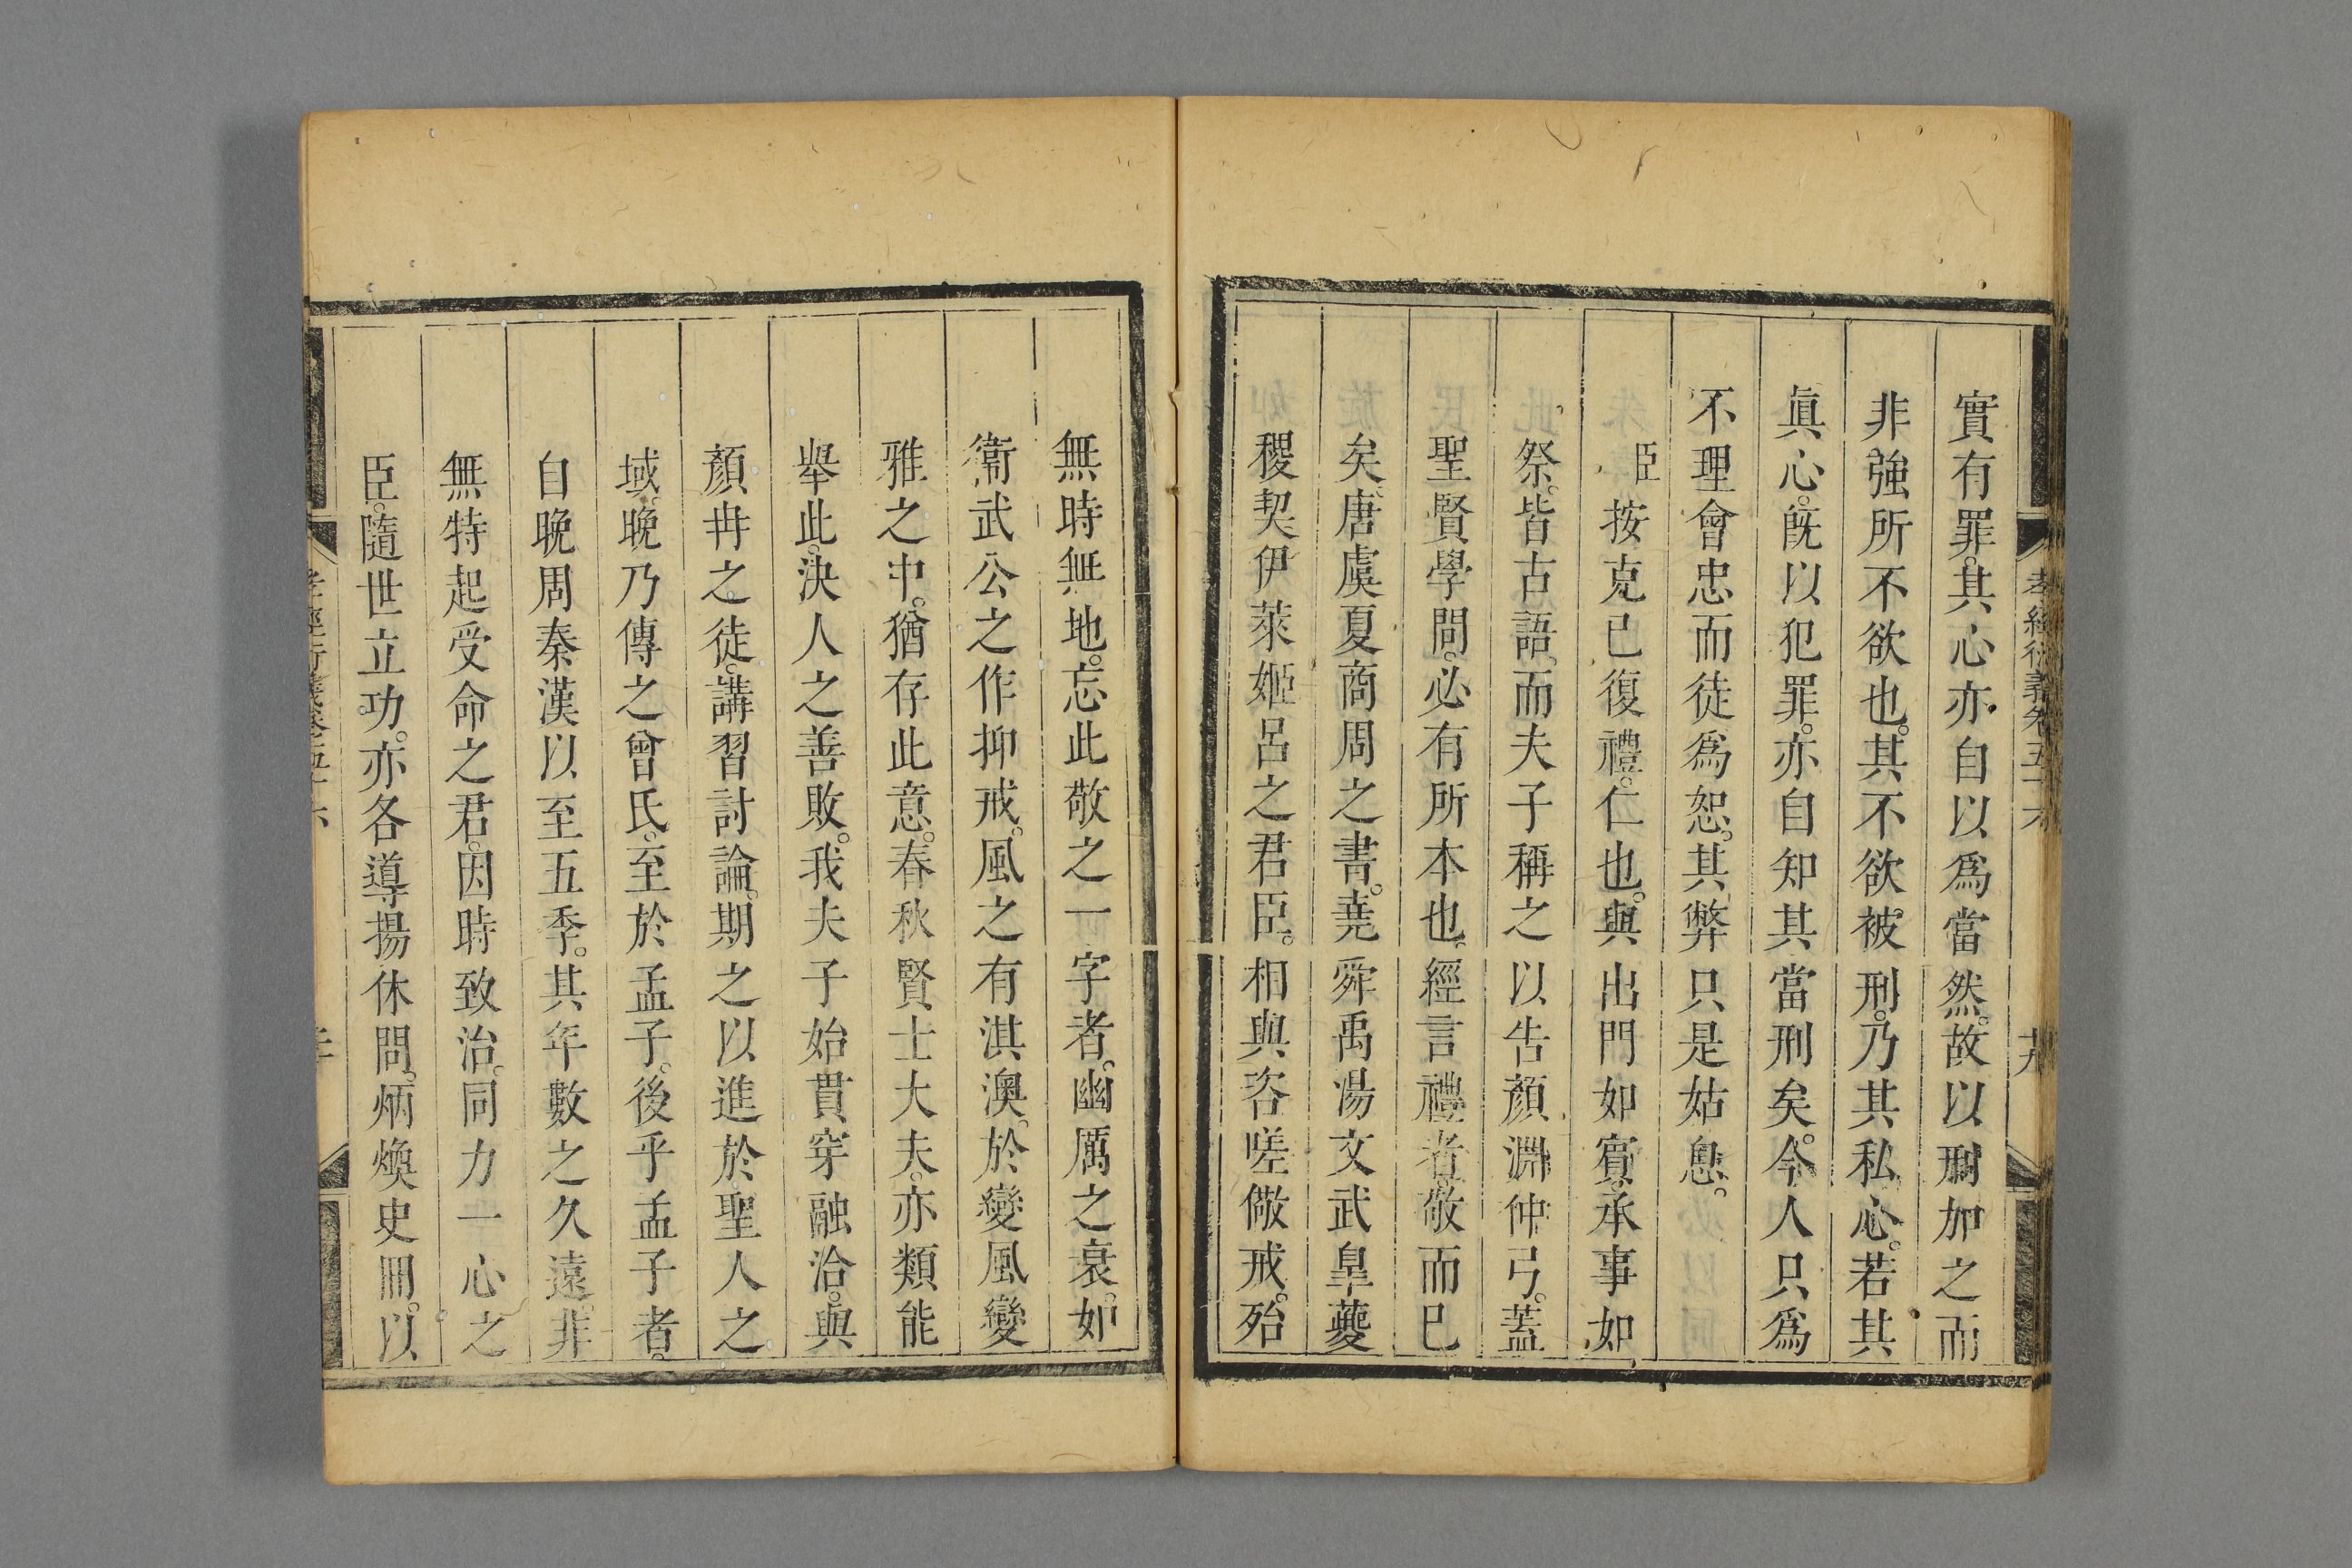 孝經衍義卷五十六
實有罪。其心亦自以為當然。故以刑加之而
非強所不欲也。其不欲被刑。乃其私心。若其
眞心。旣以犯罪。亦自知其當刑矣。今人只爲
不理會忠而徒爲恕。其弊只是姑息。
臣按克已復禮。仁也。與出門如賓。承事如
祭。皆古語。而夫子稱之以告顏淵仲弓。蓋
聖賢學問。必有所本也。經言禮者。敬而已
矣。唐虞夏商周之書。堯舜禹湯文武皐夔
稷契伊萊姬呂之君臣。相與咨嗟儆戒。殆
無時無地。忘此敬之一字者。幽厲之衰。如
衞武公之作抑戒。風之有淇澳。於變風變
雅之中。猶存此意。春秋賢士大夫。亦類能
舉此。決人之善敗。我夫子始貫穿融洽。與
顏冉之徒。講習討論。期之以進於聖人之
域。晚乃傳之曾氏。至於孟子。後乎孟子者。
自晚周秦漢以至五季。其年數之久遠。非
無特起受命之君。因時致治。同力一心之
臣。隨世立功。亦各導揚休問。炳煥史冊。以